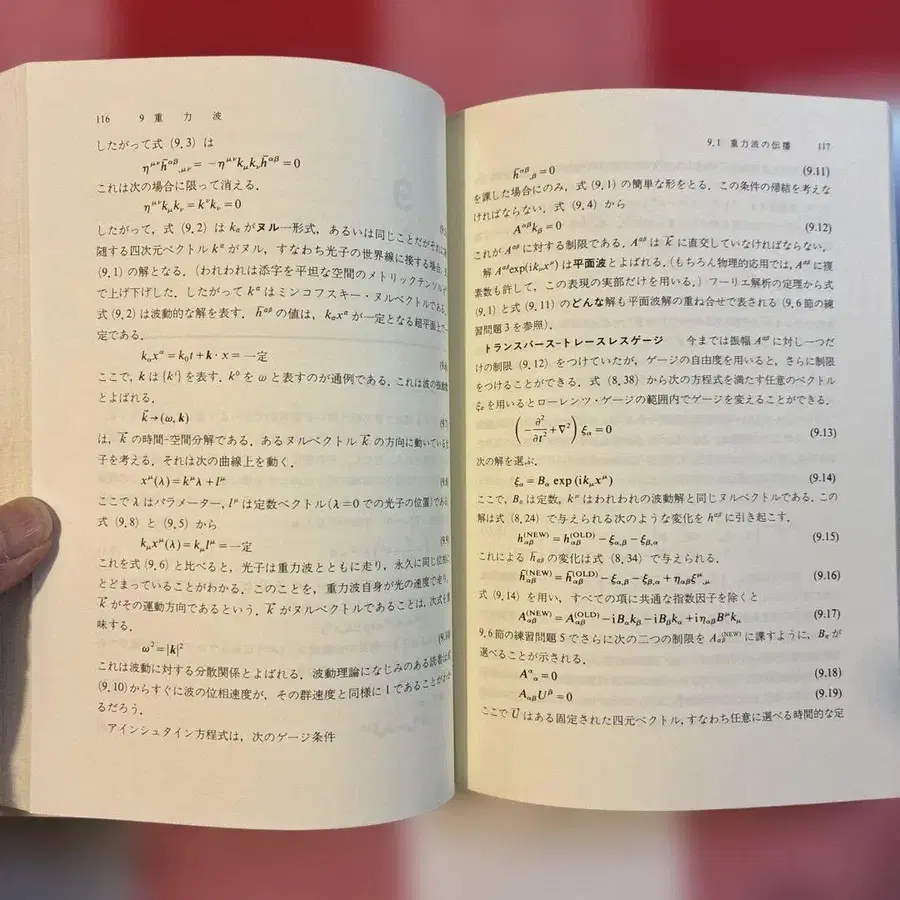 116 9 重 力 波
したがって式 (9.3) は
η^{μν}h̄^{αβ}_{,μν} = −η^{μν}k_μk_νh̄^{αβ} = 0
これは次の場合に限って消える.
η^{μν}k_μk_ν = k^νk_ν = 0
したがって, 式 (9.2) は k_α がヌル一形式, あるいは同じことだがそれに
随する四次元ベクトル k^α がヌル, すなわち光子の世界線に接する場合,
(9.1) の解となる. (われわれは添字を平坦な空間のメトリックテンソル
で上げ下げした. したがって k^α はミンコフスキー・ヌルベクトルである.
式 (9.2) は波動的な解を表す. h̄^{αβ} の値は, k_αx^α が一定となる超平面上で一
定である.
k_αx^α = k_0t + k・x = 一定 (9.6
ここで, k は {k^i} を表す. k^0 を ω と表すのが通例である. これは波の振動数
とよばれる.
k⃗→(ω, k) (9.7
は, k⃗ の時間-空間分解である. あるヌルベクトル k⃗ の方向に動いている
子を考える. それは次の曲線上を動く.
x^μ(λ) = k^μλ + l^μ (9.8
ここで λ はパラメーター, l^μ は定数ベクトル(λ=0 での光子の位置)であ
式 (9.8) と (9.5) から
k_μx^μ(λ) = k_μl^μ = 一定 (9.9
これを式 (9.6) と比べると, 光子は重力波とともに走り, 永久に同じ位相
とどまっていることがわかる. このことを, 重力波自身が光の速度で走り,
k⃗ がその運動方向であるという. k⃗ がヌルベクトルであることは, 次式を意
味する.
ω² = |k|² (9.10
これは波動に対する分散関係とよばれる. 波動理論になじみのある読者は式
(9.10)からすぐに波の位相速度が, その群速度と同様に 1 であることがわか
るだろう.
アインシュタイン方程式は, 次のゲージ条件
9.1 重力波の伝播 117
h̄^{αβ}_{,β} = 0 (9.11)
を課した場合にのみ, 式 (9.1) の簡単な形をとる. この条件の帰結を考えな
ければならない. 式 (9.4) から
A^{αβ}k_β = 0 (9.12)
これが A^{αβ} に対する制限である. A^{αβ} は k⃗ に直交していなければならない.
解 A^{αβ}exp(ik_μx^μ) は平面波とよばれる. (もちろん物理的応用では, A^{αβ} に複
素数も許して, この表現の実部だけを用いる.) フーリエ解析の定理から式
(9.1) と式 (9.11) のどんな解も平面波解の重ね合せで表される (9.6節の練
習問題 3 を参照).
トランスバース-トレースレスゲージ 今までは振幅 A^{αβ} に対し一つだ
けの制限 (9.12) をつけていたが, ゲージの自由度を用いると, さらに制限
をつけることができる. 式 (8.38) から次の方程式を満たす任意のベクトル
ξ_α を用いるとローレンツ・ゲージの範囲内でゲージを変えることができる.
(−∂²/∂t² + ∇²) ξ_α = 0 (9.13)
次の解を選ぶ.
ξ_α = B_α exp (ik_μx^μ) (9.14)
ここで, B_α は定数, k^μ はわれわれの波動解と同じヌルベクトルである. この
解は式 (8.24) で与えられる次のような変化を h^{αβ} に引き起こす.
h_{αβ}^{(NEW)} = h_{αβ}^{(OLD)} − ξ_{α,β} − ξ_{β,α} (9.15)
これによる h̄_{αβ} の変化は式 (8.34) で与えられる.
h̄_{αβ}^{(NEW)} = h̄_{αβ}^{(OLD)} − ξ_{α,β} − ξ_{β,α} + η_{αβ}ξ^μ_{,μ} (9.16)
式 (9.14) を用い, すべての項に共通な指数因子を除くと
A_{αβ}^{(NEW)} = A_{αβ}^{(OLD)} − iB_αk_β − iB_βk_α + iη_{αβ}B^μk_μ (9.17)
9.6節の練習問題 5 でさらに次の二つの制限を A_{αβ}^{(NEW)} に課すように, B_α が
選べることが示される.
A^α_α = 0 (9.18)
A_{αβ}U^β = 0 (9.19)
ここで U⃗ はある固定された四元ベクトル, すなわち任意に選べる時間的な定